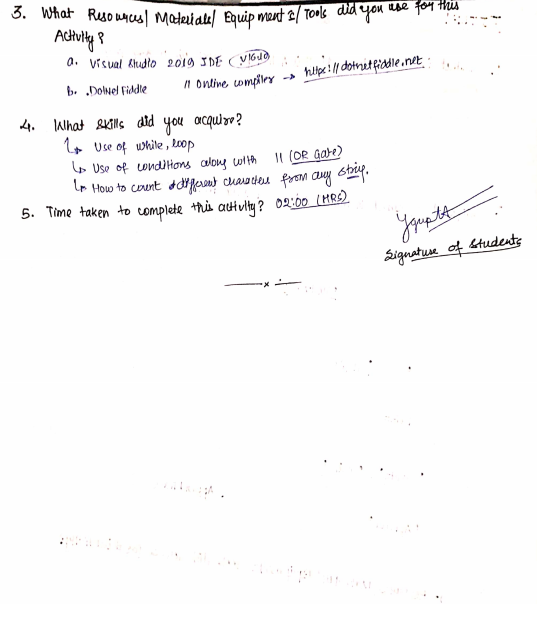 3. What Resources/ Materials/ Equipments/ Tools did you use for this
Activity?
a. Visual Studio 2019 IDE
b. .DotNet Fiddle // Online compiler → https://dotnetfiddle.net
4. What skills did you acquire?
↳ Use of while, loop
↳ Use of conditions along with || (OR Gate)
↳ How to count different characters from any string.
5. Time taken to complete this activity? 02:00 (HRS)
Ygupta
Signature of Students